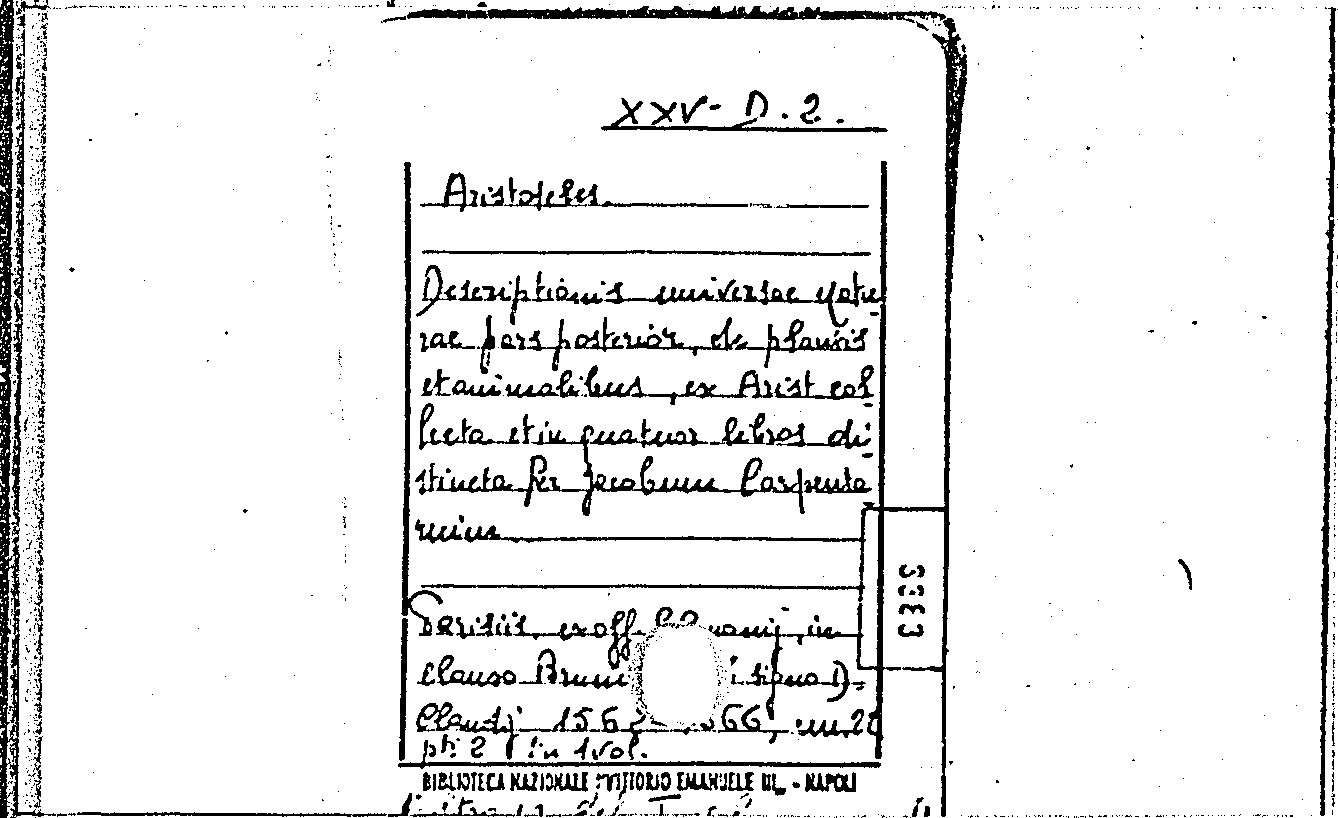 XXV- D. 2.
Aristoteles.
Descriptionis universae Natu
rae pars posterior, de plantis
et animalibus, ex Arist col
lecta et in quatuor libros di
stincta Per Jacobum Carpenta
rium
Parisiis, ex off. in
clauso Bruni signo D.
Claudij 156 66, cm. 22
pti 2 in 1 vol.
BIBLIOTECA NAZIONALE "VITTORIO EMANUELE III" - NAPOLI